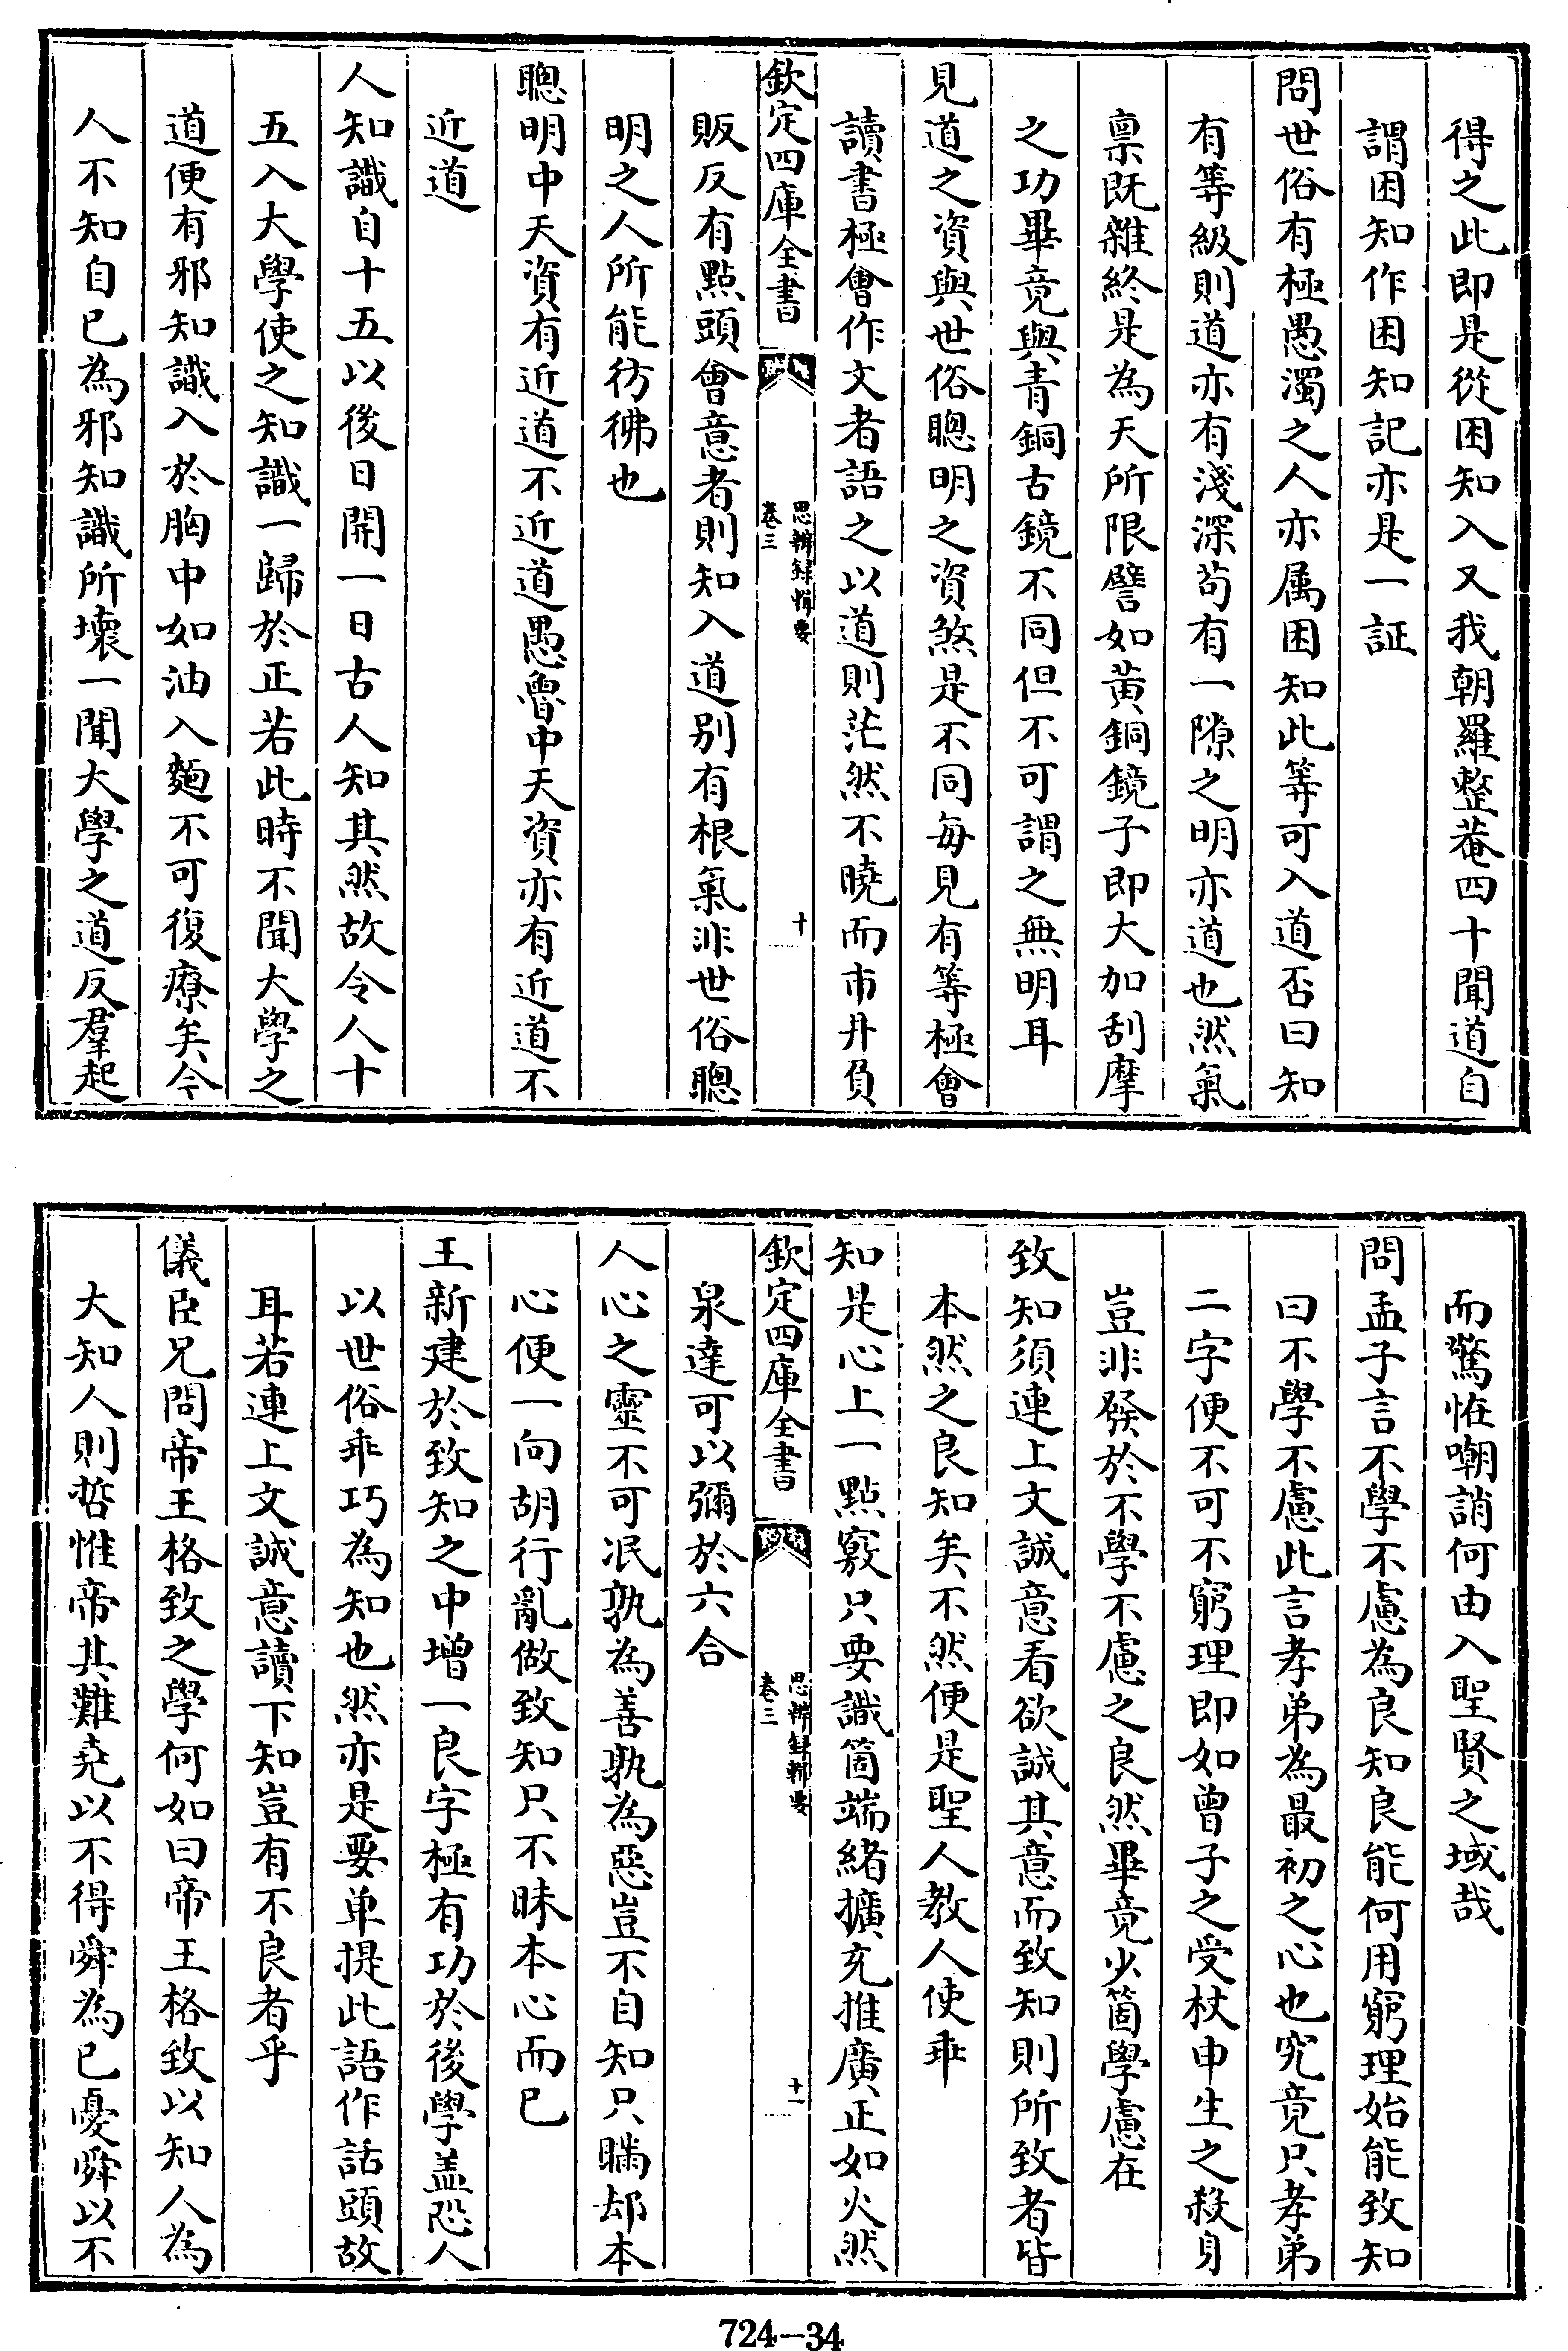 得之此即是從困知入又我朝羅整菴四十聞道自
謂困知作困知記亦是一証
問世俗有極愚濁之人亦属困知此等可入道否曰知
有等級則道亦有淺深苟有一隙之明亦道也然氣
禀既雜終是為天所限譬如黄銅鏡子即大加刮摩
之功畢竟與青銅古鏡不同但不可謂之無明耳
見道之資與世俗聰明之資煞是不同每見有等極會
讀書極會作文者語之以道則茫然不曉而市井負
欽定四庫全書
思辨録輯要
卷三
十
販反有點頭會意者則知入道别有根氣非世俗聰
明之人所能彷彿也
聰明中天資有近道不近道愚魯中天資亦有近道不
近道
人知識自十五以後日開一日古人知其然故令人十
五入大學使之知識一歸於正若此時不聞大學之
道便有邪知識入於胸中如油入麵不可復療矣今
人不知自己為邪知識所壞一聞大學之道反羣起
而驚怪嘲誚何由入聖賢之域哉
問孟子言不學不慮為良知良能何用窮理始能致知
曰不學不慮此言孝弟為最初之心也究竟只孝弟
二字便不可不窮理即如曾子之受杖申生之殺身
豈非發於不學不慮之良然畢竟少箇學慮在
致知須連上文誠意看欲誠其意而致知則所致者皆
本然之良知矣不然便是聖人教人使乖
知是心上一點竅只要識箇端緒擴充推廣正如火然
欽定四庫全書
思辨録輯要
卷三
十一
泉達可以彌於六合
人心之靈不可泯孰為善孰為惡豈不自知只瞞却本
心便一向胡行亂做致知只不昧本心而已
王新建於致知之中增一良字極有功於後學盖恐人
以世俗乖巧為知也然亦是要单提此語作話頭故
耳若連上文誠意讀下知豈有不良者乎
儀臣兄問帝王格致之學何如曰帝王格致以知人為
大知人則哲惟帝其難堯以不得舜為已憂舜以不
724-34